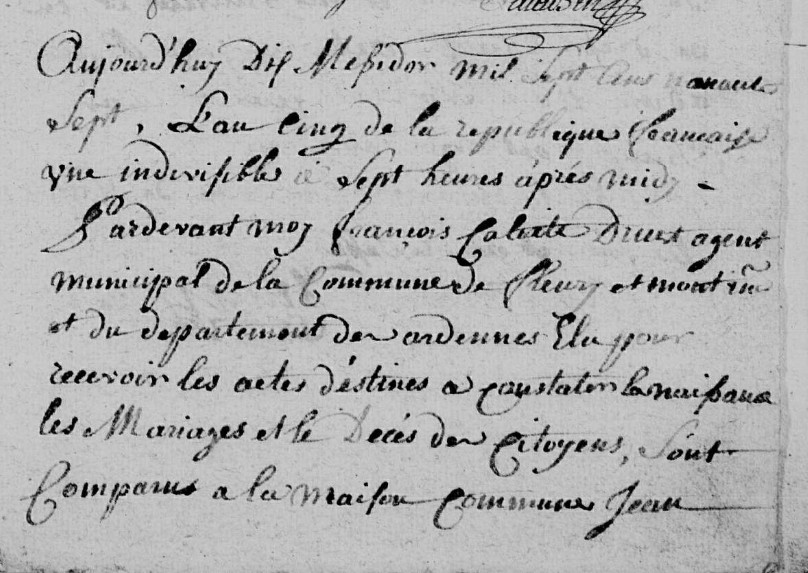 Aujourd'huy Dix Messidor mil Sept Cens nonante
Sept, L'an Cinq de la republique francaise
vne indivisible a Sept heures áprés midy -
Pardevant moy françois Druet agent
municipal de la Commune de fleury et mont
et du departement der ardennes Elu pour
recevoir les actes déstines a Constater la naissance
les Mariages et le Decés des Citoyens, Sont
Comparus a la maison Commune Jean